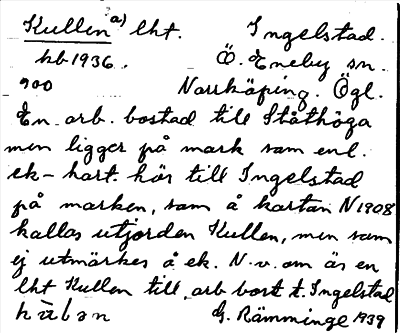 Kullen a) lht. Ingelstad.
hb 1936. Ö. Eneby sn.
900 Norrköping. Ögl.
En arb. bostad till Ståthöga
men ligger på mark som enl.
ek-kart. hör till Ingelstad
på marken, som å kartan N 1908
kallas utjorden Kullen, men som
ej utmärkes å ek. N.v. om är en
lht Kullen till arb bost t. Ingelstad
G. Rämminge 1939